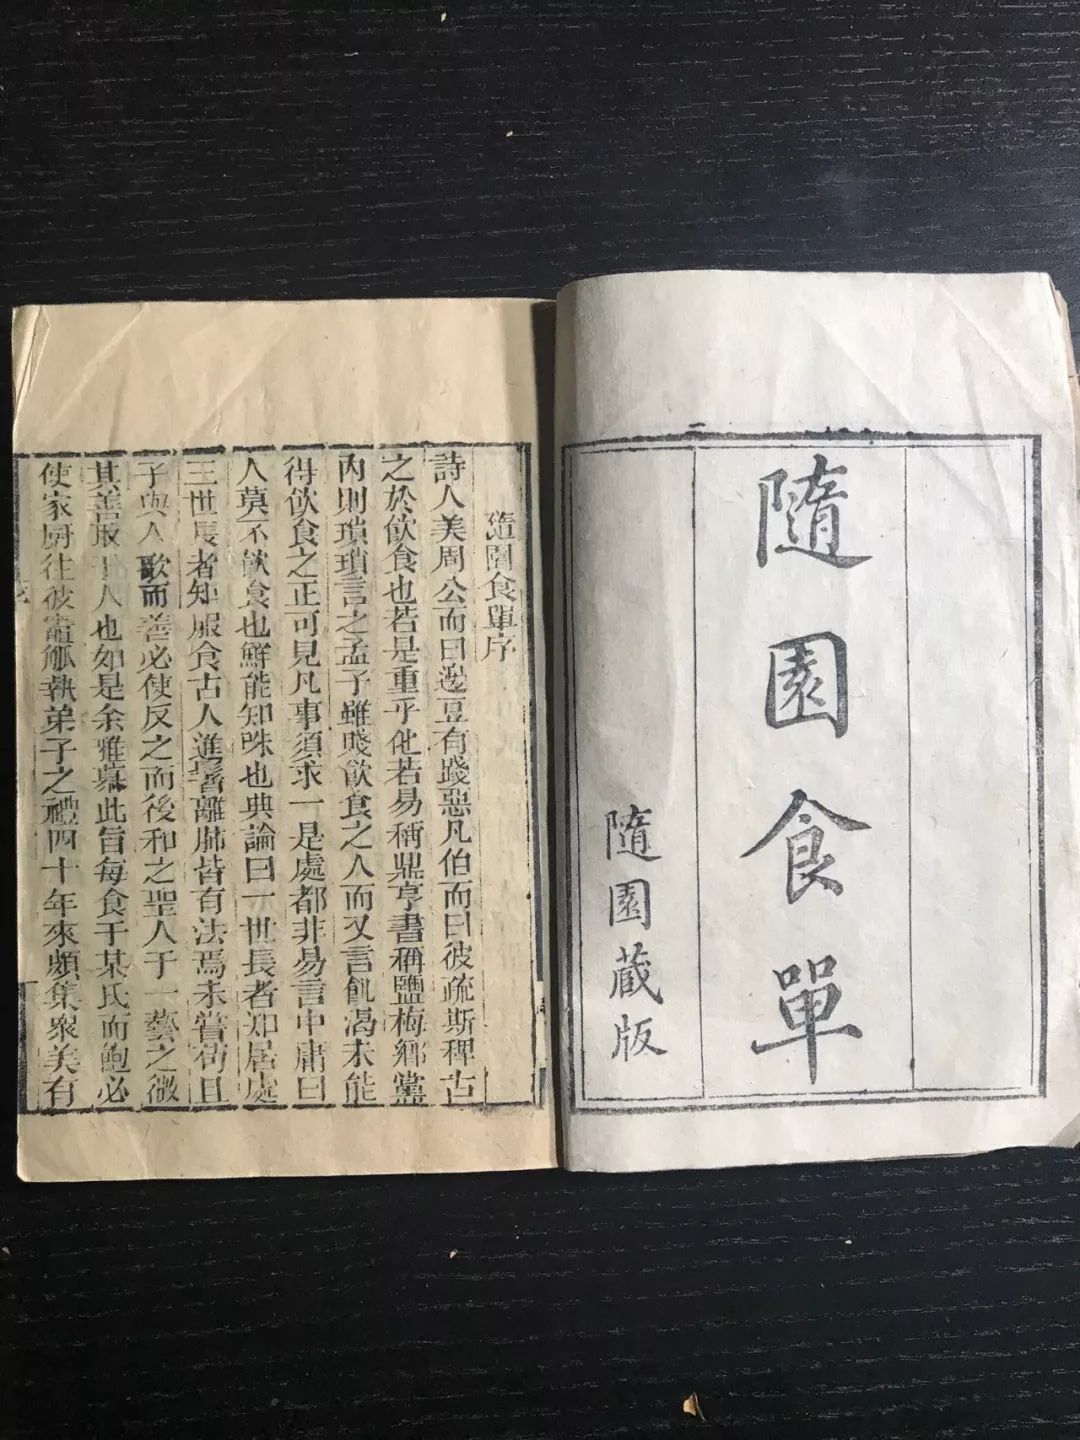 隨園食單
隨園蔵版
隨園食單序
詩人美周公而曰籩豆有踐惡凡伯而曰彼疏斯稗古
之於飲食也若是重乎他若易稱鼎亨書稱鹽梅鄉黨
內則瑣瑣言之孟子雖賤飲食之人而又言飢渴未能
得飲食之正可見凡事須求一是處都非易言中庸曰
人莫不飲食也鮮能知味也典論曰一世長者知居處
三世長者知服食古人進鬐離肺皆有法焉未嘗苟且
子與人歌而善必使反之而後和之聖人于一藝之微
其善取于人也如是余雅慕此旨每食于某氏而飽必
使家厨往彼竈觚執弟子之禮四十年來頗集衆美有